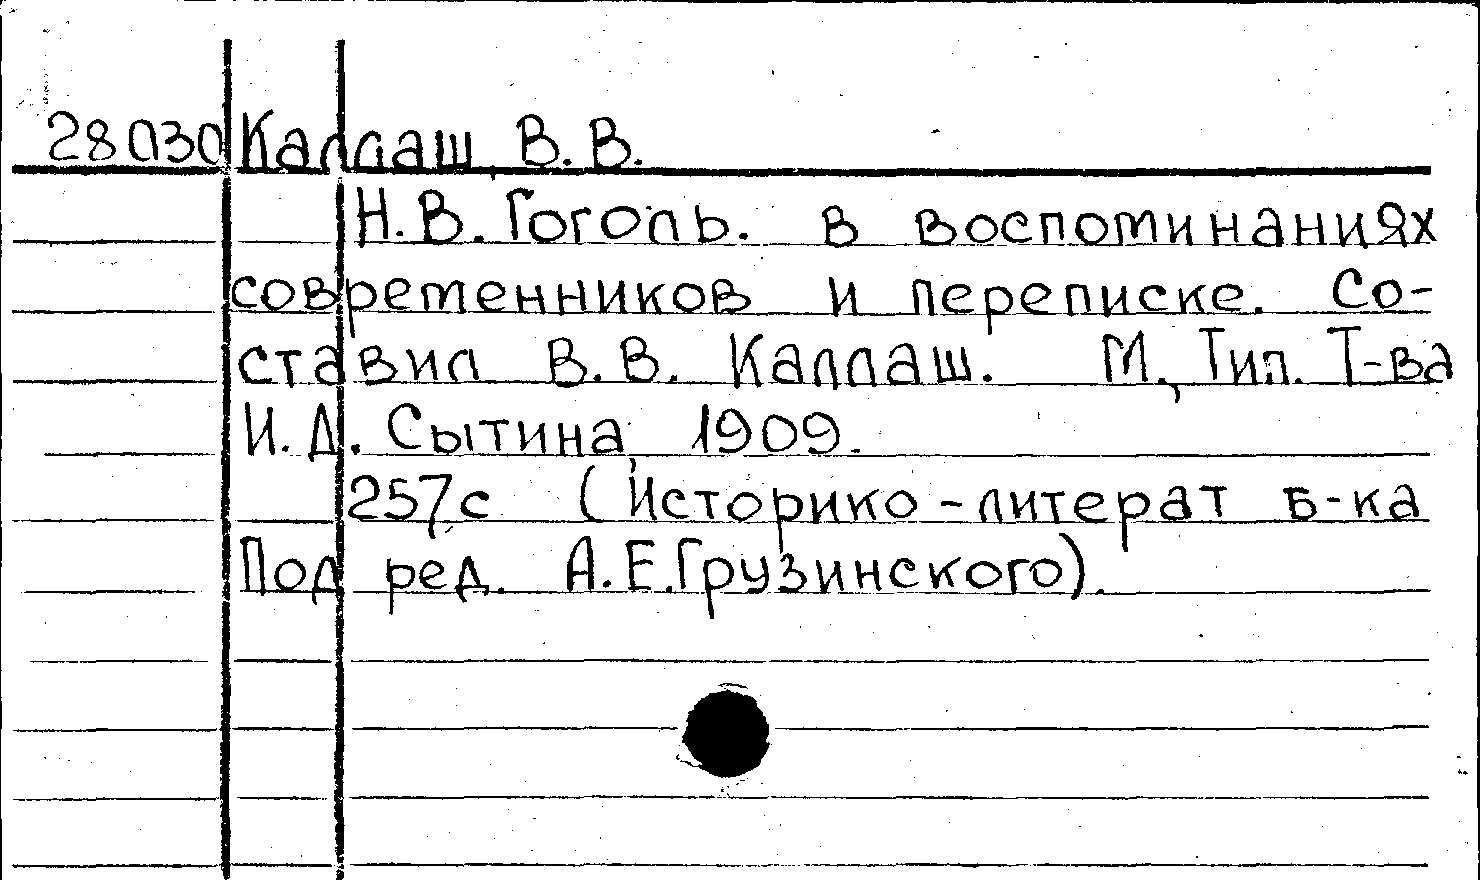 28030 Каллаш, В. В.
Н. В. Гоголь. в воспоминаниях
современников и переписке. Со-
ставил В. В. Каллаш. М., Тип. Т-ва
И. Д. Сытина, 1909.
257с (Историко-литерат б-ка
Под ред. А. Е. Грузинского).